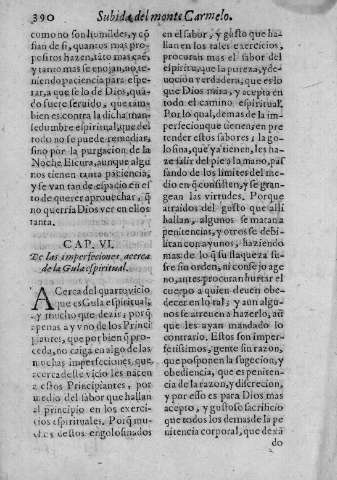 390 Subida del monte Carmelo.
como no son humildes, y cõ
fian de sí, quantos mas pro-
positos hazen, tãto mas cae,
y tanto mas se enojan, no te-
niendo paciencia para espe-
rar, a que se lo dè Dios, quã-
do fuere seruido, que tam-
bien es contra la dicha man-
sedumbre espiritual, que del
todo no se puede remediar,
sino por la purgacion de la
Noche Escura, aunque algu
nos tienen tanta paciencia,
y se van tan de espacio en es-
to de querer aprouechar, q̃
no querria Dios ver en ellos
tanta.
CAP. VI.
De las imperfeciones, acerca
de la Gula espiritual.
ACerca del quarto vicio,
que es Gula espiritual,
ay mucho que dezir; porq̃
apenas ay vno de los Princi
piantes, que por bien q̃ pro-
ceda, no caiga en algo de las
muchas imperfeciones, que
acerca deste vicio les nacen
a estos Principiantes, por
medio del sabor que hallan
al principio en los exerci-
cios espirituales. Porq̃ mu-
chos destos engolosinados
en el sabor, y gusto que ha-
llan en los tales exercicios,
procuran mas el sabor del
espiritu, que la pureza, y de-
uocion verdadera, que es lo
que Dios mira, y acepta en
todo el camino espiritual.
Por lo qual, demas de la im-
perfecion que tienen, en pre
tender estos sabores; la go-
losina, que ya tienen, les ha-
ze salir del pie a la mano, pas
sando de los limites del me-
dio en q̃ consisten, y se gran-
gean las virtudes. Porque
atraidos del gusto que alli
hallan, algunos se matan a
penitencias, y otros se debi-
litan con ayunos, haziendo
mas de lo q̃ su flaqueza su-
fre sin orden, ni consejo age
no, antes procuran hurtar el
cuerpo a quien deuen obe-
decer en lo tal; y aun algu-
nos se atreuen a hazerlo, aũ
que les ayan mandado lo
contrario. Estos son imper-
fetissimos, gente sin razon,
que posponen la sugecion, y
obediencia, que es peniten-
cia de la razon, y discrecion,
y por esso es para Dios mas
acepto, y gustoso sacrificio
que todos los demas de la pe
nitencia corporal, que dexã
do